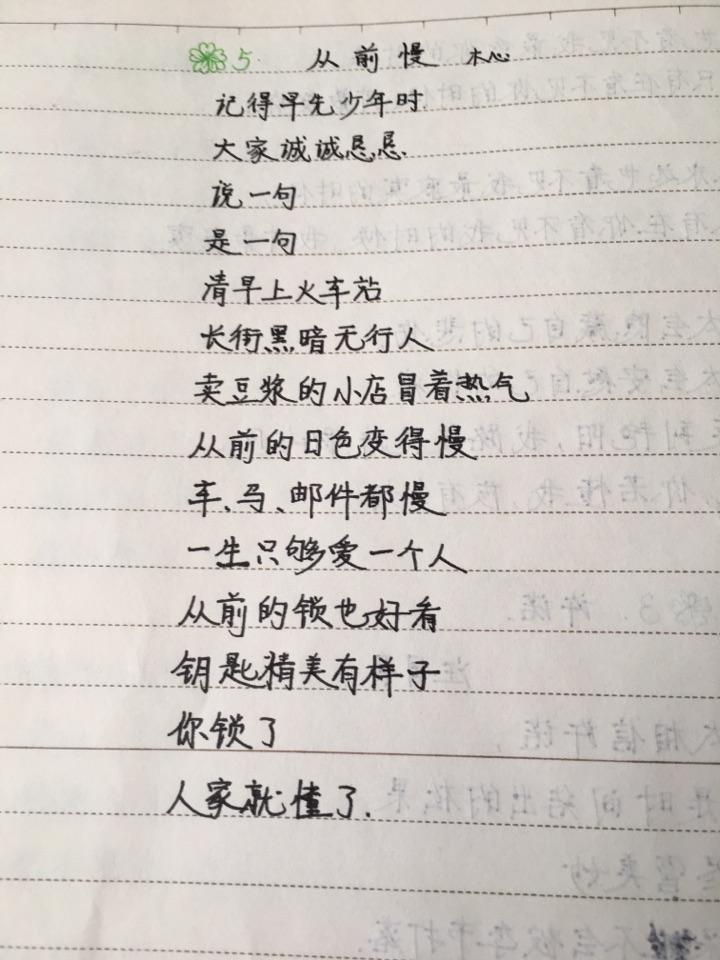 5. 从前慢 木心
记得早先少年时
大家诚诚恳恳.
说一句
是一句
清早上火车站
长街黑暗无行人
卖豆浆的小店冒着热气
从前的日色变得慢
车、马、邮件都慢
一生只够爱一个人
从前的锁也好看
钥匙精美有样子
你锁了
人家就懂了.